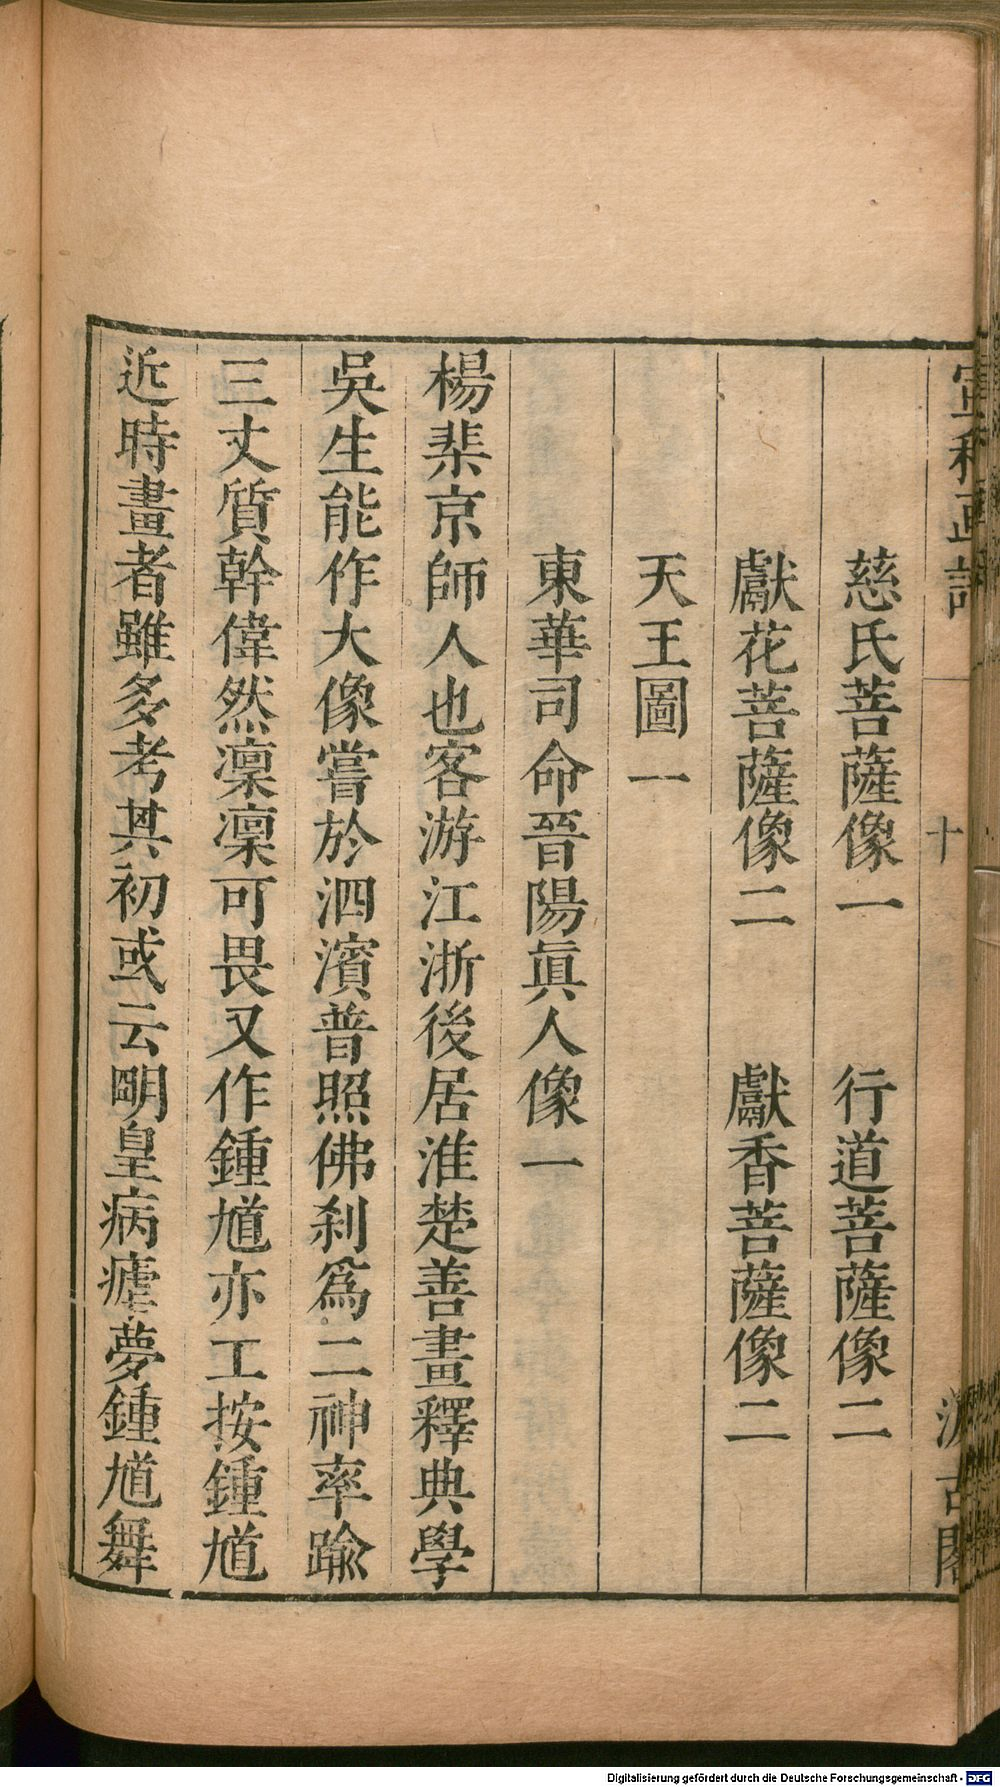 宣和画譜 十 汲古閣
慈氏菩薩像一 行道菩薩像二
獻花菩薩像二 獻香菩薩像二
天王圖一
東華司命晉陽眞人像一
楊棐京師人也客游江浙後居淮楚善畫釋典學
吳生能作大像嘗於泗濱普照佛刹爲二神率踰
三丈質幹偉然凜凜可畏又作鍾馗亦工按鍾馗
近時畫者雖多考其初或云明皇病瘧夢鍾馗舞
Digitalisierung gefördert durch die Deutsche Forschungsgemeinschaft - DFG